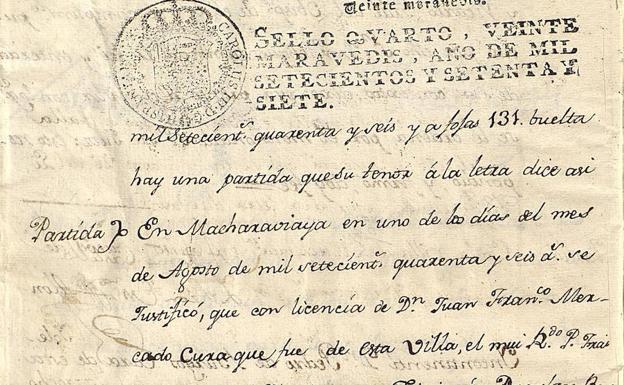 Veinte maravedis.
SELLO QVARTO, VEINTE
MARAVEDIS, AÑO DE MIL
SETECIENTOS Y SETENTA Y
SIETE.
CAROLUS III D G HISPANIAR
mil setecient.s quarenta y seis y a fojas 131. buelta
hay una partida que su tenor á la letra dice asi
Partida En Macharaviaya en uno de los dias del mes
de Agosto de mil setecient.s quarenta y seis a.s se
Justificó, que con licencia de D.n Juan Fran.co Mer-
cado Cura que fue de esta Villa, el mui R.do P. Frai